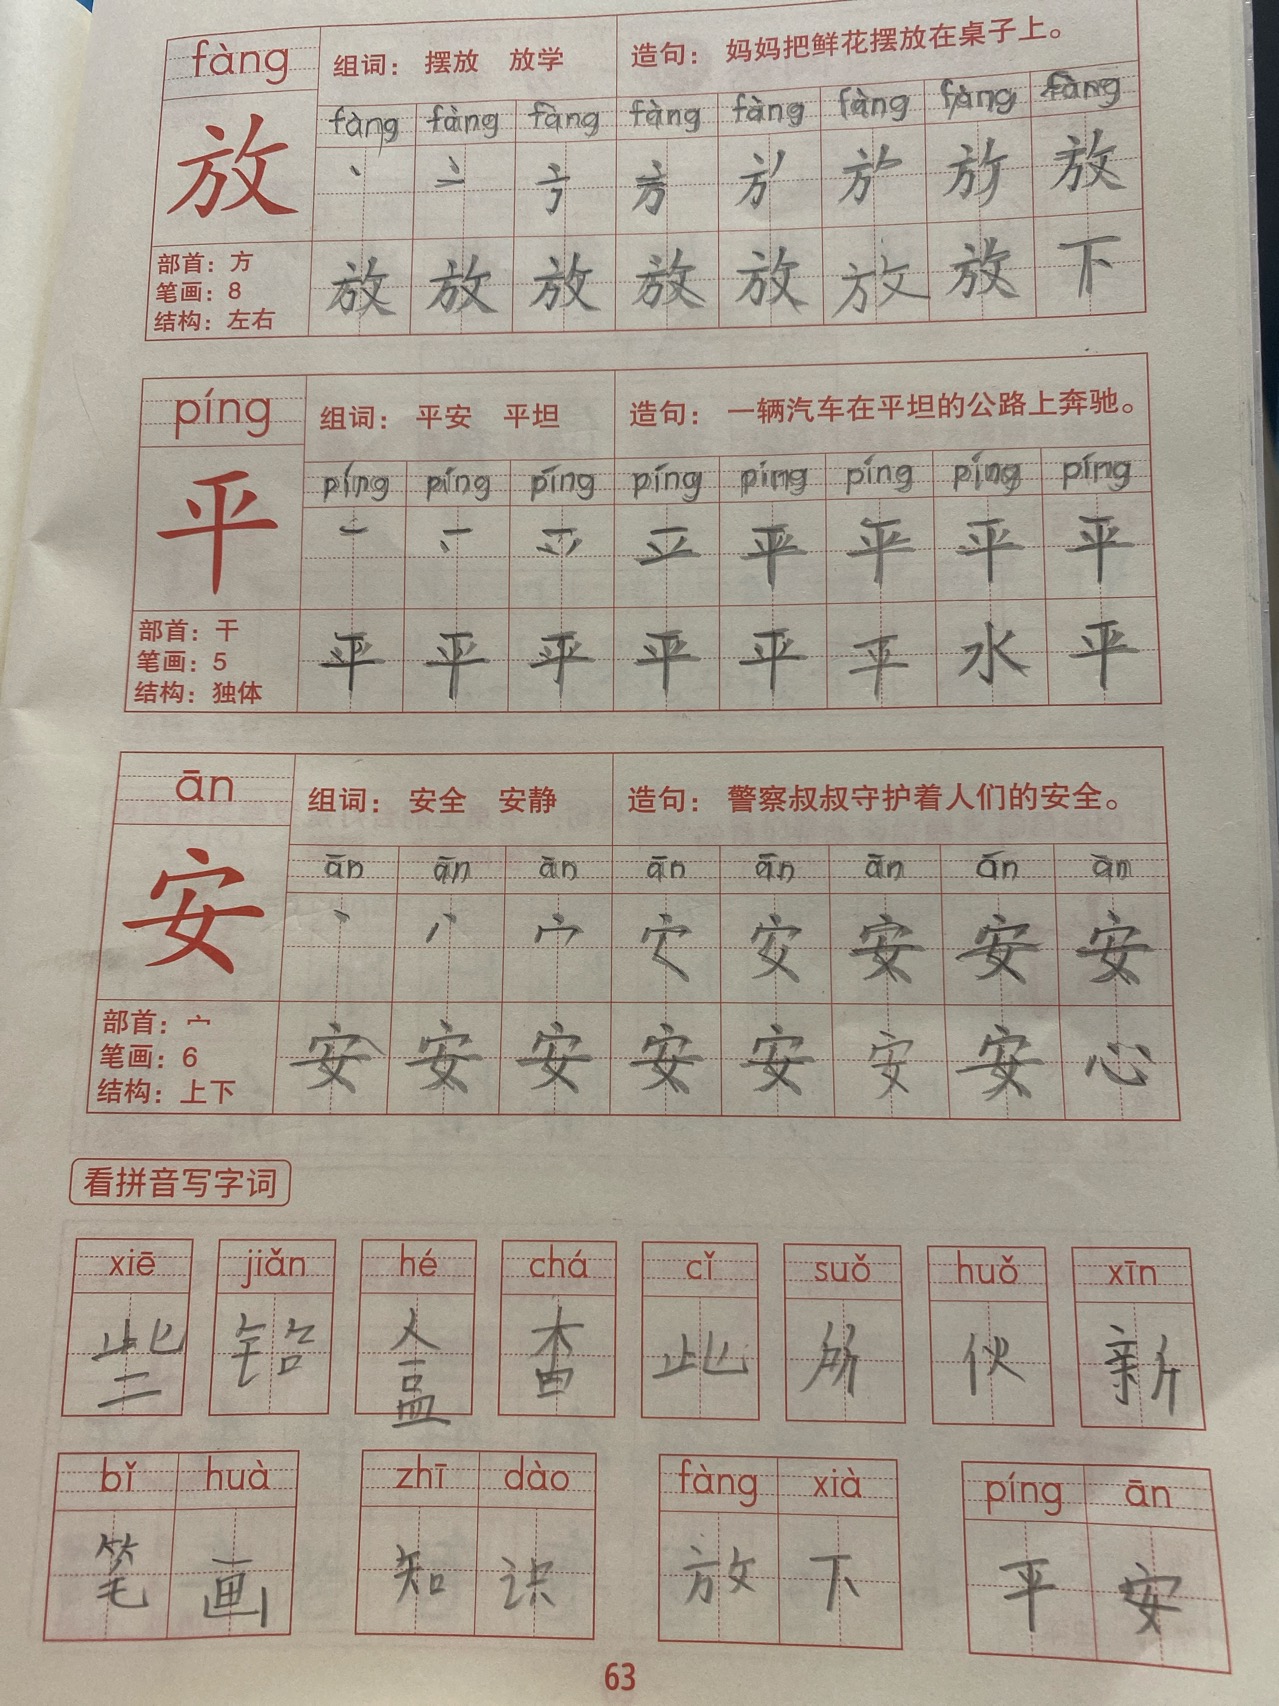 fàng 组词：摆放 放学 造句：妈妈把鲜花摆放在桌子上。
fàng fàng fàng fàng fàng fàng fàng fàng
放 放
部首：方
笔画：8
结构：左右
放 放 放 放 放 放 放 下
píng 组词：平安 平坦 造句：一辆汽车在平坦的公路上奔驰。
píng píng píng píng píng píng píng píng
平 平 平 平 平
部首：干
笔画：5
结构：独体
平 平 平 平 平 平 水 平
ān 组词：安全 安静 造句：警察叔叔守护着人们的安全。
ān ān ān ān ān ān ān ān
安 丶 宀 安 安 安
部首：宀
笔画：6
结构：上下
安 安 安 安 安 安 安 心
看拼音写字词
xiē jiǎn hé chá cǐ suǒ huǒ xīn
些 盒 查 此 所 伙 新
bǐ huà zhī dào fàng xià píng ān
笔 画 知 识 放 下 平 安
63